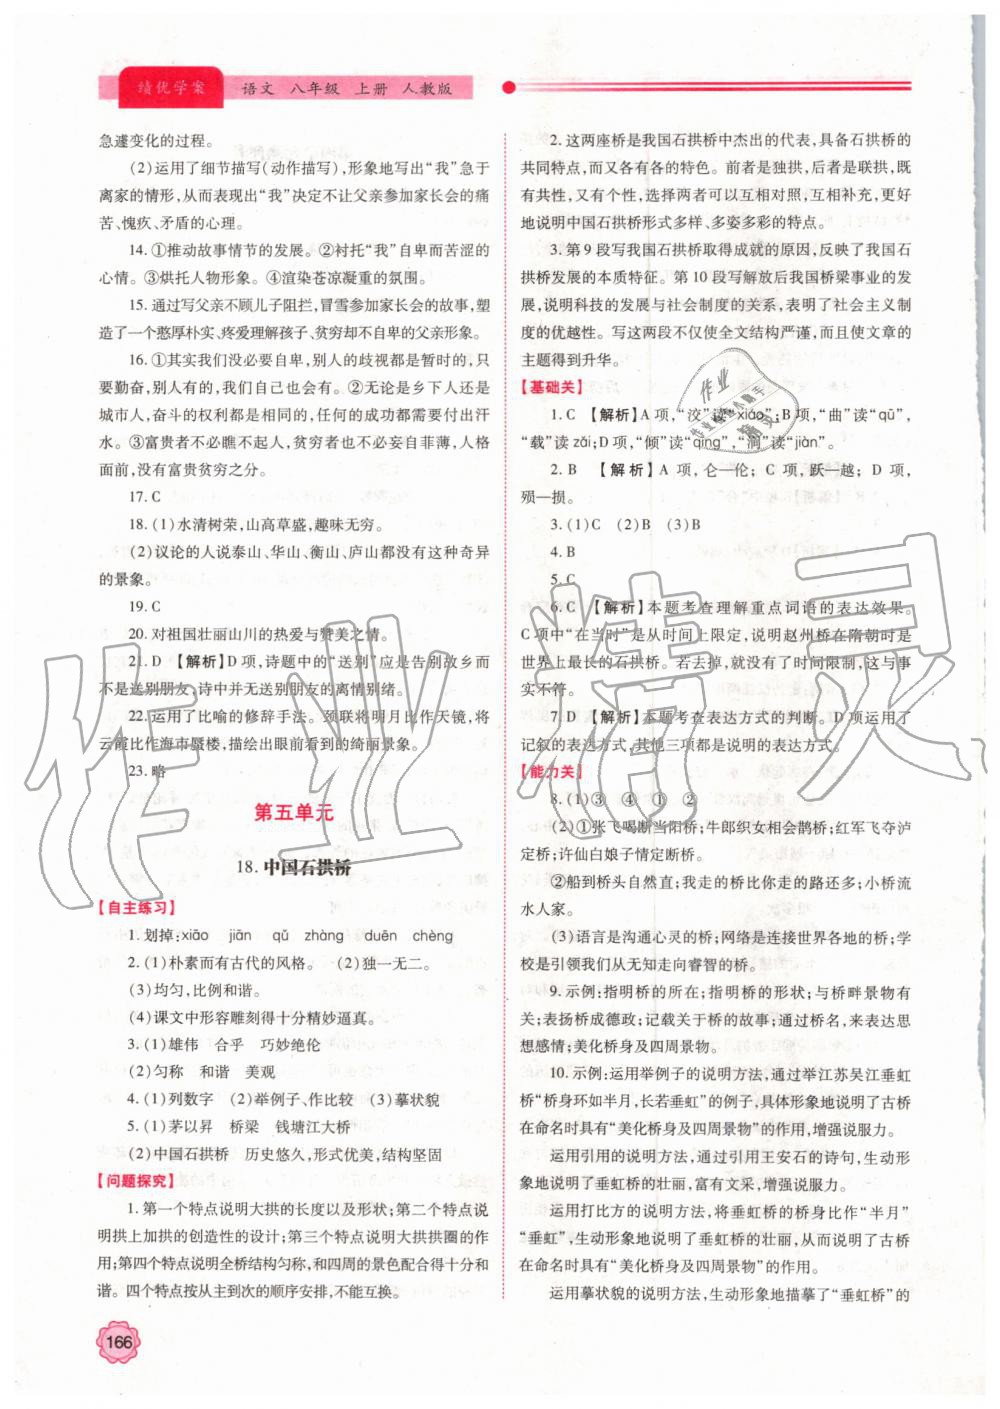 绩优学案 语文 八年级 上册 人教版
急遽变化的过程。
(2)运用了细节描写(动作描写),形象地写出“我”急于
离家的情形,从而表现出“我”决定不让父亲参加家长会的痛
苦、愧疚、矛盾的心理。
14. ①推动故事情节的发展。②衬托“我”自卑而苦涩的
心情。③烘托人物形象。④渲染苍凉凝重的氛围。
15. 通过写父亲不顾儿子阻拦,冒雪参加家长会的故事,塑
造了一个憨厚朴实、疼爱理解孩子、贫穷却不自卑的父亲形象。
16. ①其实我们没必要自卑,别人的歧视都是暂时的,只
要勤奋,别人有的,我们自己也会有。②无论是乡下人还是
城市人,奋斗的权利都是相同的,任何的成功都要付出汗
水。③富贵者不必瞧不起人,贫穷者也不必妄自菲薄,人格
面前,没有富贵贫穷之分。
17. C
18. (1)水清树荣,山高草盛,趣味无穷。
(2)议论的人说泰山、华山、衡山、庐山都没有这种奇异
的景象。
19. C
20. 对祖国壮丽山川的热爱与赞美之情。
21. D 【解析】D项,诗题中的“送别”应是告别故乡而
不是送别朋友,诗中并无送别朋友的离情别绪。
22. 运用了比喻的修辞手法。颈联将明月比作天镜,将
云霞比作海市蜃楼,描绘出眼前看到的绮丽景象。
23. 略
第五单元
18. 中国石拱桥
【自主练习】
1. 划掉:xiāo jiān qǔ zhàng duēn chèng
2. (1)朴素而有古代的风格。 (2)独一无二。
(3)均匀,比例和谐。
(4)课文中形容雕刻得十分精妙逼真。
3. (1)雄伟 合乎 巧妙绝伦
(2)匀称 和谐 美观
4. (1)列数字 (2)举例子、作比较 (3)摹状貌
5. (1)茅以昇 桥梁 钱塘江大桥
(2)中国石拱桥 历史悠久,形式优美,结构坚固
【问题探究】
1. 第一个特点说明大拱的长度以及形状;第二个特点说
明拱上加拱的创造性的设计;第三个特点说明大拱拱圈的作
用;第四个特点说明全桥结构匀称,和四周的景色配合得十分和
谐。四个特点按从主到次的顺序安排,不能互换。
166
2. 这两座桥是我国石拱桥中杰出的代表,具备石拱桥的
共同特点,而又各有各的特色。前者是独拱,后者是联拱,既
有共性,又有个性,选择两者可以互相对照,互相补充,更好
地说明中国石拱桥形式多样、多姿多彩的特点。
3. 第9段写我国石拱桥取得成就的原因,反映了我国石
拱桥发展的本质特征。第10段写解放后我国桥梁事业的发
展,说明科技的发展与社会制度的关系,表明了社会主义制
度的优越性。写这两段不仅使全文结构严谨,而且使文章的
主题得到升华。
【基础关】
1. C 【解析】A项,“洨”读“xiáo”;B项,“曲”读“qū”,
“载”读zǎi;D项,“倾”读“qīng”,“涧”读“jiàn”。
2. B 【解析】A项,仑—伦;C项,跃—越;D项,
殒—损。
3. (1)C (2)B (3)B
4. B
5. C
6. C 【解析】本题考查理解重点词语的表达效果。
C项中“在当时”是从时间上限定,说明赵州桥在隋朝时是
世界上最长的石拱桥。若去掉,就没有了时间限制,这与事
实不符。
7. D 【解析】本题考查表达方式的判断。D项运用了
记叙的表达方式,其他三项都是说明的表达方式。
【能力关】
8. (1)③ ④ ① ②
(2)①张飞喝断当阳桥;牛郎织女相会鹊桥;红军飞夺泸
定桥;许仙白娘子情定断桥。
②船到桥头自然直;我走的桥比你走的路还多;小桥流
水人家。
(3)语言是沟通心灵的桥;网络是连接世界各地的桥;学
校是引领我们从无知走向睿智的桥。
9. 示例:指明桥的所在;指明桥的形状;与桥畔景物有
关;表扬桥成德政;记载关于桥的故事;通过桥名,来表达思
想感情;美化桥身及四周景物。
10. 示例:运用举例子的说明方法,通过举江苏吴江垂虹
桥“桥身环如半月,长若垂虹”的例子,具体形象地说明了古桥
在命名时具有“美化桥身及四周景物”的作用,增强说服力。
运用引用的说明方法,通过引用王安石的诗句,生动形
象地说明了垂虹桥的壮丽,富有文采,增强说服力。
运用打比方的说明方法,将垂虹桥的桥身比作“半月”
“垂虹”,生动形象地说明了垂虹桥的壮丽,从而说明了古桥
在命名时具有“美化桥身及四周景物”的作用。
运用摹状貌的说明方法,生动形象地描摹了“垂虹桥”的
作业精灵